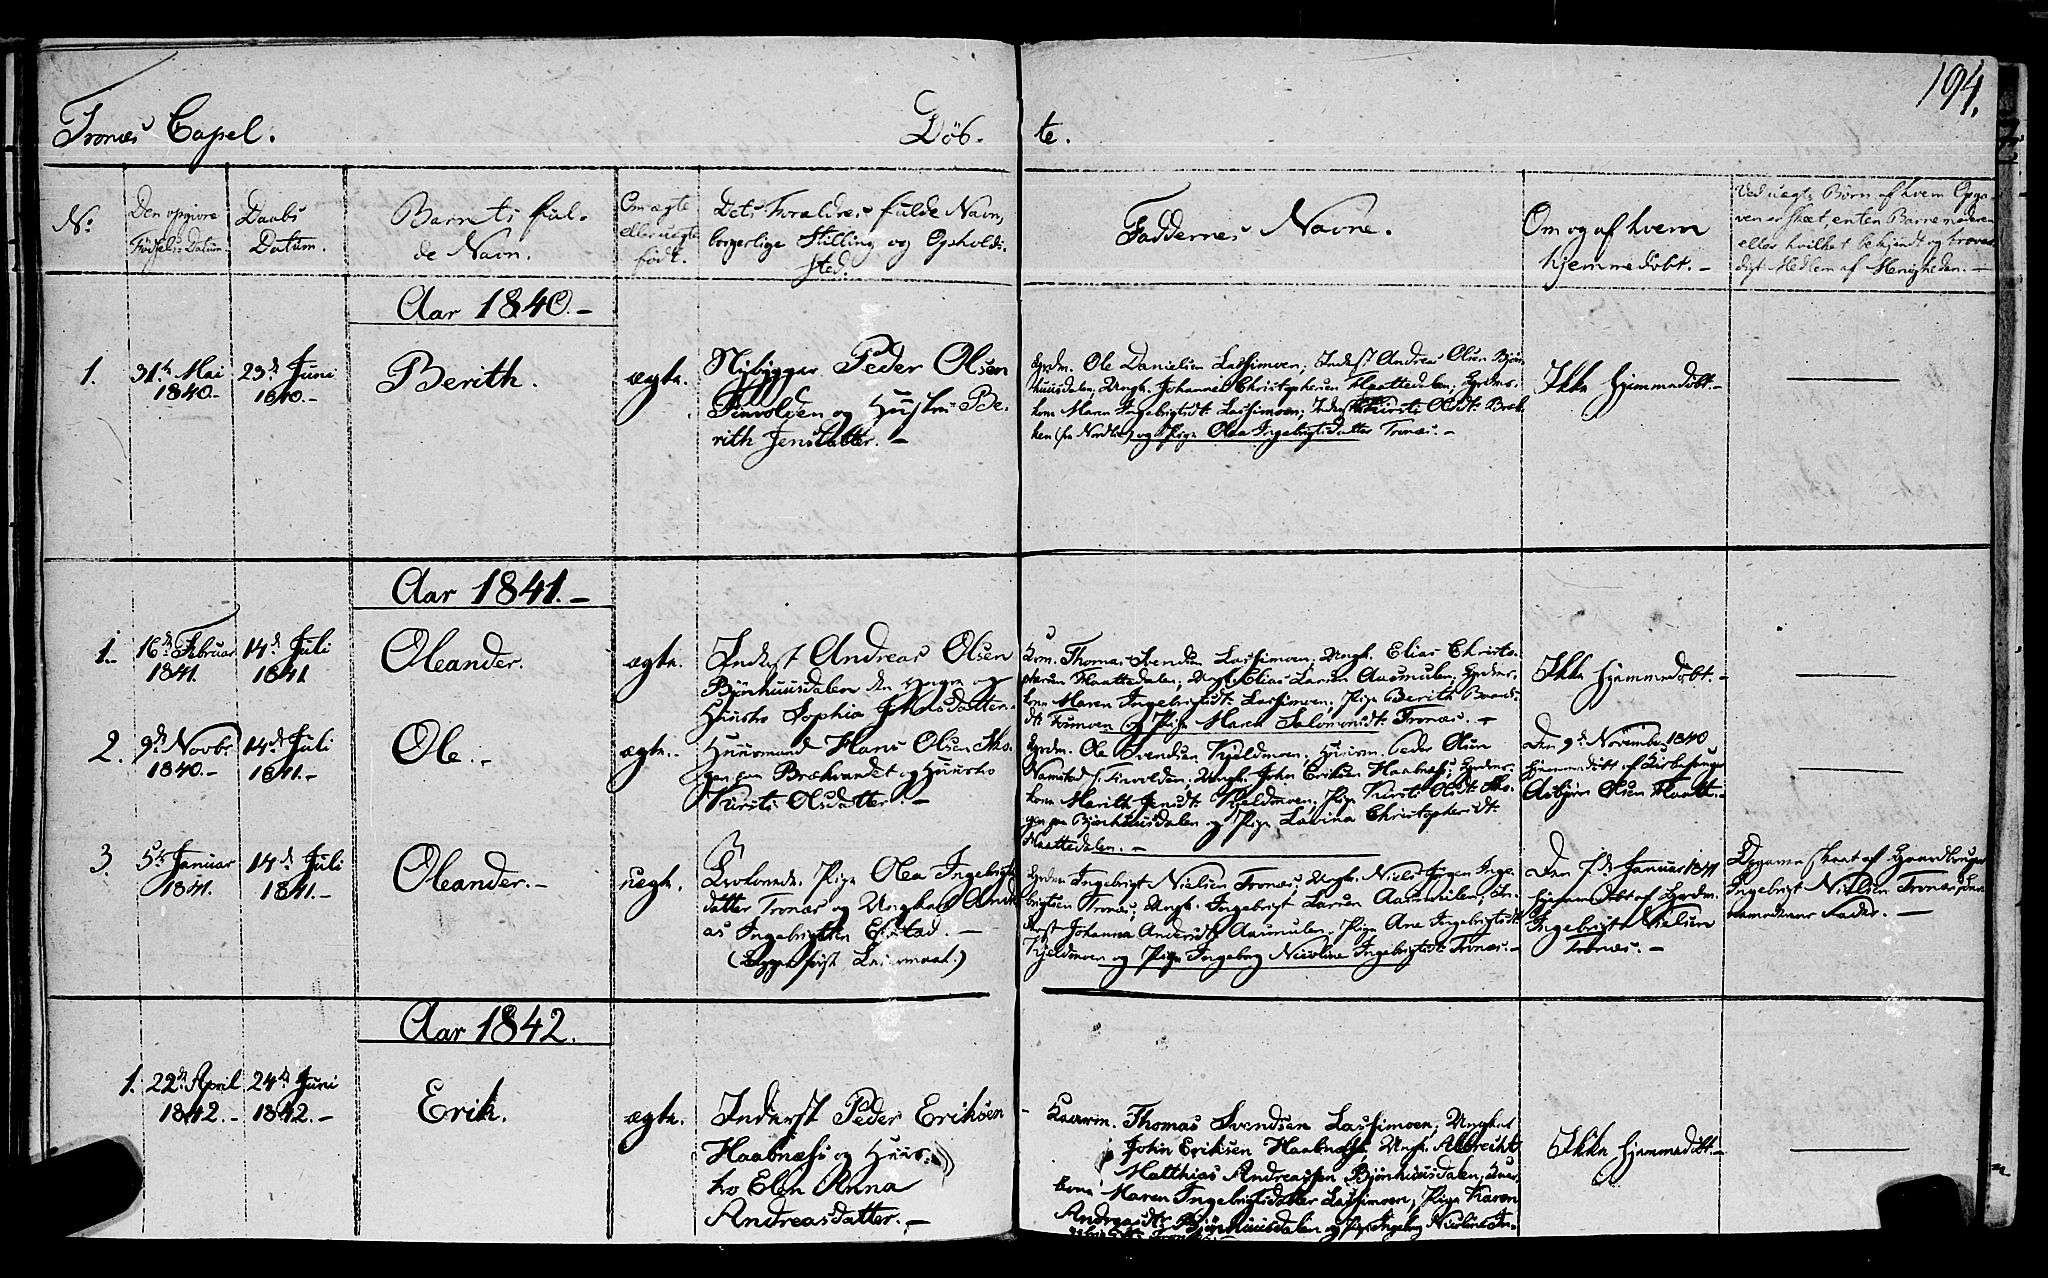 194.
Tronæs Capel. Döb- te.
No
Den opgivne
Födsels-Datum
Daabs
Datum.
Barnets ful-
de Navn.
Om ægte
eller uægte
födt.
Dets Foraldres fulde Navn,
borgerlige Stilling og Opholds-
sted.
Faddernes Navne.
Om og af hvem
hjemmedöbt. -
Ved uægte Börn af hvem Opga-
ven er skeet, enten Barnemoderen
eller hvilket bekjendt og trovær-
digt Medlem af Menigheden. -
Aar 1840. -
1.
31te Mai
1840. -
23de Juni
1840. -
Berith.
ægte.
Nybygger Peder Olsen
Finvolden og Hustru Be-
rith Jensdatter. -
Grdm. Ole Danielsen Lassemoen; Inderst Andreas Olsen Björn-
huusdalen; Ungk. Johannes Christophersen Flaattedalen; Grdmds-
kone Maren Ingebrigtsdt. Lassemoen; Inderst Kirsti Olsdt. Bræk-
ken (fra Nordlie) og Pige Olea Ingebrigtsdatter Tronæs. -
Ikke hjemmedöbt. -
Aar 1841. -
1. -
16de Februar
1841.
14de Juli
1841
Oleander.
ægte.
Inderst Andreas Olsen
Björnhuusdalen den yngre og
Huustro Sophia Johnsdatter.
Grdm. Thomas Svendsen Lassemoen; Ungk. Elias Christo-
phersen Flaattedalen; Ungk. Elias Larsen Aasmulen; Grdmds-
kone Maren Ingebrigtsdt. Lassemoen; Pige Berith Baards-
dt. Tunnsoen og Pige Maren Salomonsdt. Tronæs. -
Ikke hjemmedöbt. -
2.
9de Novbr
1840. -
14de Juli
1841. -
Ole. -
ægte. -
Huusmand Hans Olsen Sko-
gen paa Brækvandet og Huustro
Kirsti Olsdatter. -
Grdm. Ole Svendsen Kjeldmoen. Huusm. Peder Olsen
Namstad f. Finvolden; Ungk. John Eriksen Haabnæss; Grdmds-
kone Marith Jensdt. Kjeldmoen; Pige Kirsti Olsdt. Sko-
gen paa Björnhuusdalen og Pige Lavina Christophersdt.
Flaattedalen. -
Den 9de November 1840
hjemmedöbt af Kirkesanger
Asbjörn Olsen Flaatt. -
3.
5te Januar
1841.
14de Juli
1841. -
Oleander. -
uægte.
Pige Olea Ingebrigts-
datter Tronæs og Ungkarl Andre-
as Ingebrigtsen Estad. -
(Begges förste Leiermaal.)
Grdm. Ingebrigt Nielsen Tronæs; Ungk. Niels Jörgen Inge-
brigtsen Tronæs; Ungk. Ingebrigt Larsen Aasmulen; In-
derst Johanna Andersdt. Aasmulen. Pige Ane Ingebrigtsdt.
Kjeldmoen og Pige Ingeborg Nicoline Ingebrigtsdt. Tronæs. -
Den 7de Januar 1841
hjemmedöbt af Grdm.
Ingebrigt Nielsen
Tronæs. -
Opgaven skeet af Gaardbruger
Ingebrigt Nielsen Tronæs, Bar-
nemoderens Fader. -
Aar 1842.
1.
22de April
1842. -
24de Juni
1842. -
Erik.
ægte.
Inderst Peder Eriksen
Haabnæss og Huus-
tro Elen Anna
Andreasdatter. -
Thomas Svendsen Lassemoen; Ungkarl
John Eriksen Haabnæss; Ungk. Albrecht
Matthias Andreassen Björnhuusdalen;
kone Maren Ingebrigtsdatter Lassemoen; Pige Karen
Andreasdt. Björnhuusdalen og Pige Ingeborg Nicoline In-
Ikke hjemmedöbt. -